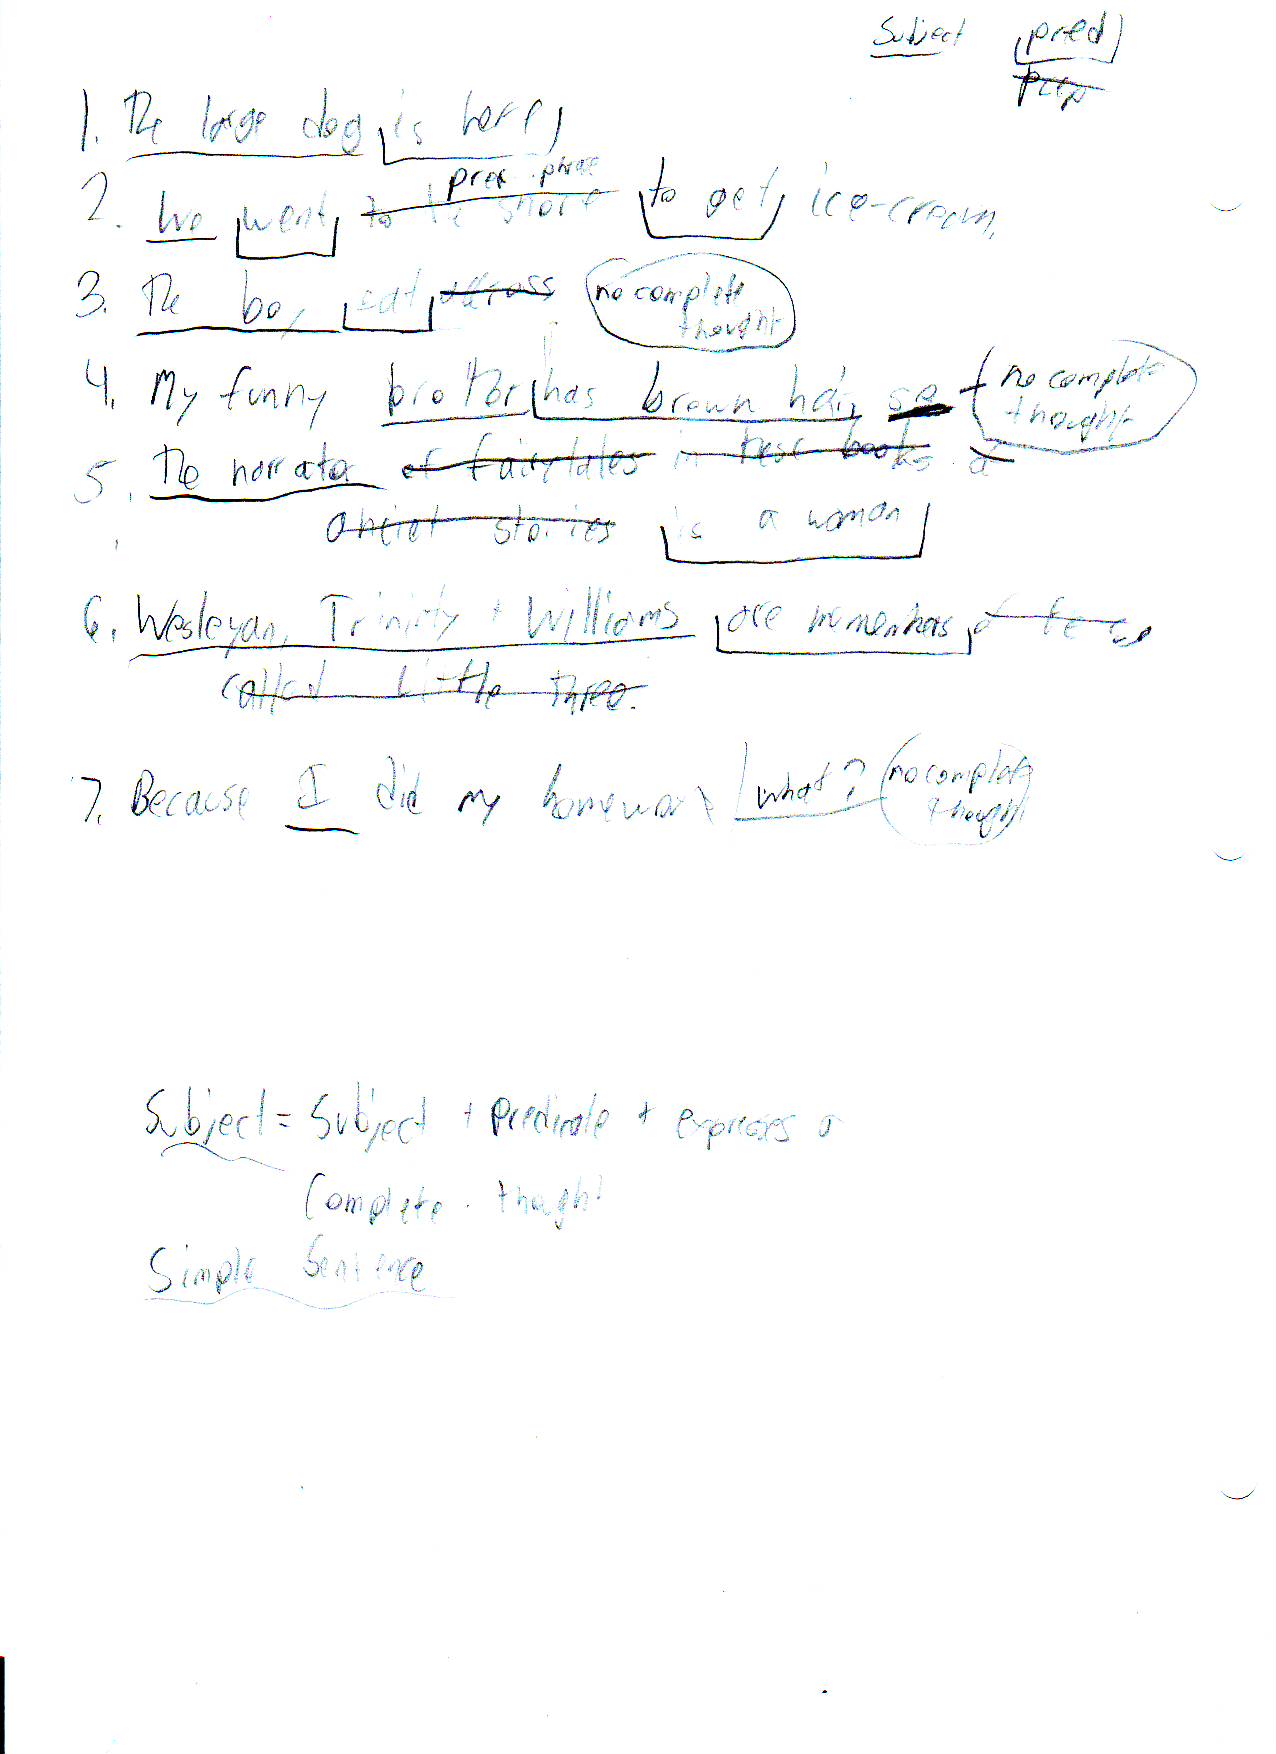 Subject pred
prep
1. The large dog is here,
2. We went to the shore to get ice-cream.
prep phrase
3. The boy sat across no complete
thought
4. My funny brother has brown hair, so + no complete
thought
5. The narrator of fairytales in these books of
stories is a woman
6. Wesleyan, Trinity + Williams are
called little three.
7. Because I did my homework what? no complete
thought
Subject = Subject + predicate + expresses a
Complete thought
Simple Sentence